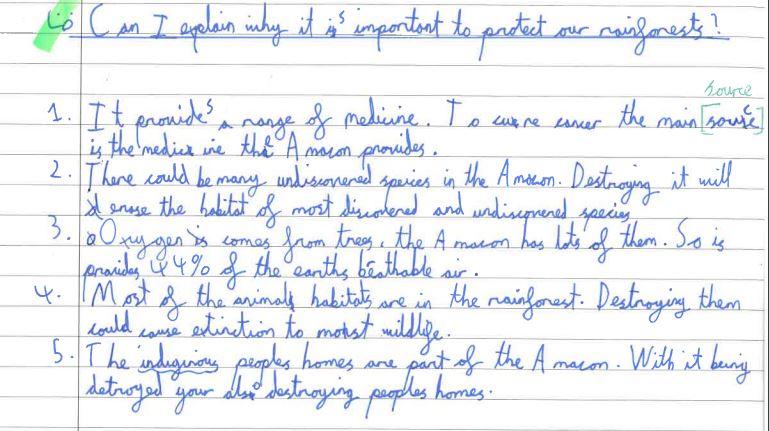 LO Can I explain why it is important to protect our rainforests?
source
1. It provides a range of medicine. To cure cancer the main [source]
is the medicine the Amacon provides.
2. There could be many undiscovered species in the Amacon. Destroying it will
erase the habitat of most discovered and undiscovered species
3. Oxygen is comes from trees, the Amacon has lots of them. So is
provides 44% of the earths beathable air.
4. Most of the animals habitats are in the rainforest. Destroying them
could cause extinction to most wildlife.
5. The indiginous peoples homes are part of the Amacon. With it being
detroyed your also destroying peoples homes.